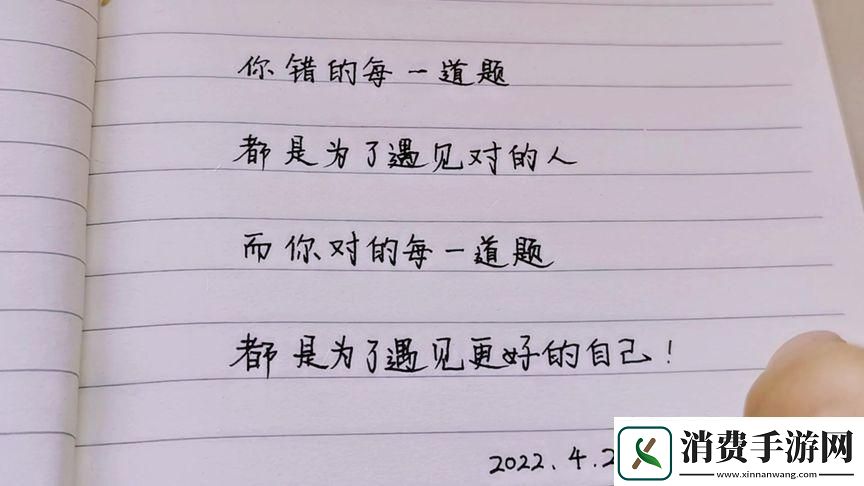 你错的每一道题
都是为了遇见对的人
而你对的每一道题
都是为了遇见更好的自己！
2022.4.2
消费手游网
www.xinnanwang.com